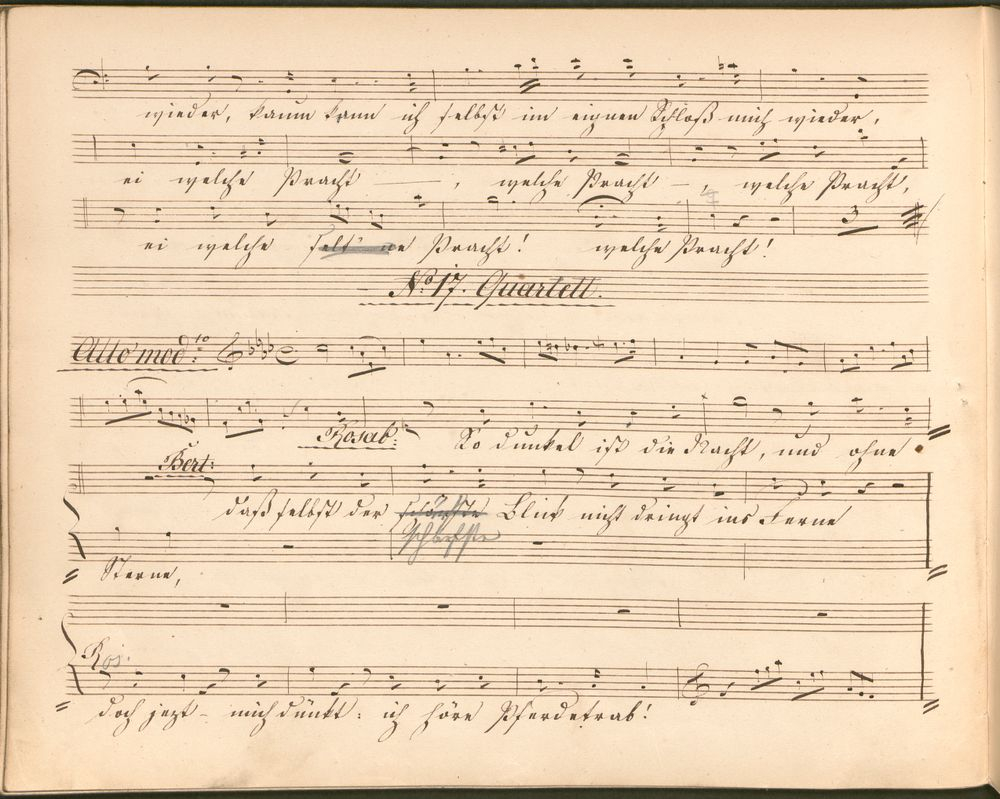 wieder, kaum kann ich selbst im eignen Schloß mich wieder,
ei welche Pracht —, welche Pracht —, welche Pracht,
3
ei welche selt'ne Pracht! welche Pracht!
No 17. Quartett.
Allo modto
Rosab: So dunkel ist die Nacht, und ohne
Bert:
daß selbst der schärfste Blick nicht dringt ins Ferne
schärfste
Sterne,
Ros.
doch jezt - mich dünkt: ich höre Pferdetrab!